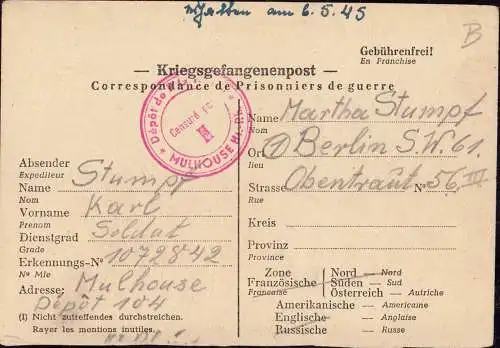 am 6.5.45
B
Gebührenfrei!
En Franchise
— Kriegsgefangenenpost —
Correspondance de Prisonniers de guerre
Dépôt de
Censuré
MULHOUSE
Absender
Expediteur
Name Stumpf
Nom
Vorname Karl
Prenom
Dienstgrad Soldat
Grade
Erkennungs-Nº 1072842
Nº Mle
Adresse: Mulhouse
Dépôt 104
(I) Nicht zutreffendes durchstreichen.
Rayer les mentions inutiles.
Name Martha Stumpf
Nom
Ort Berlin S.W. 61.
lieu
Strasse Obentraut Nº 56 III
Rue
Kreis
Provinz
Province
Zone Nord — Nord
Französische Süden — Sud
Francaise Österreich — Autriche
Amerikanische — Americaine
Englische — Anglaise
Russische — Russe